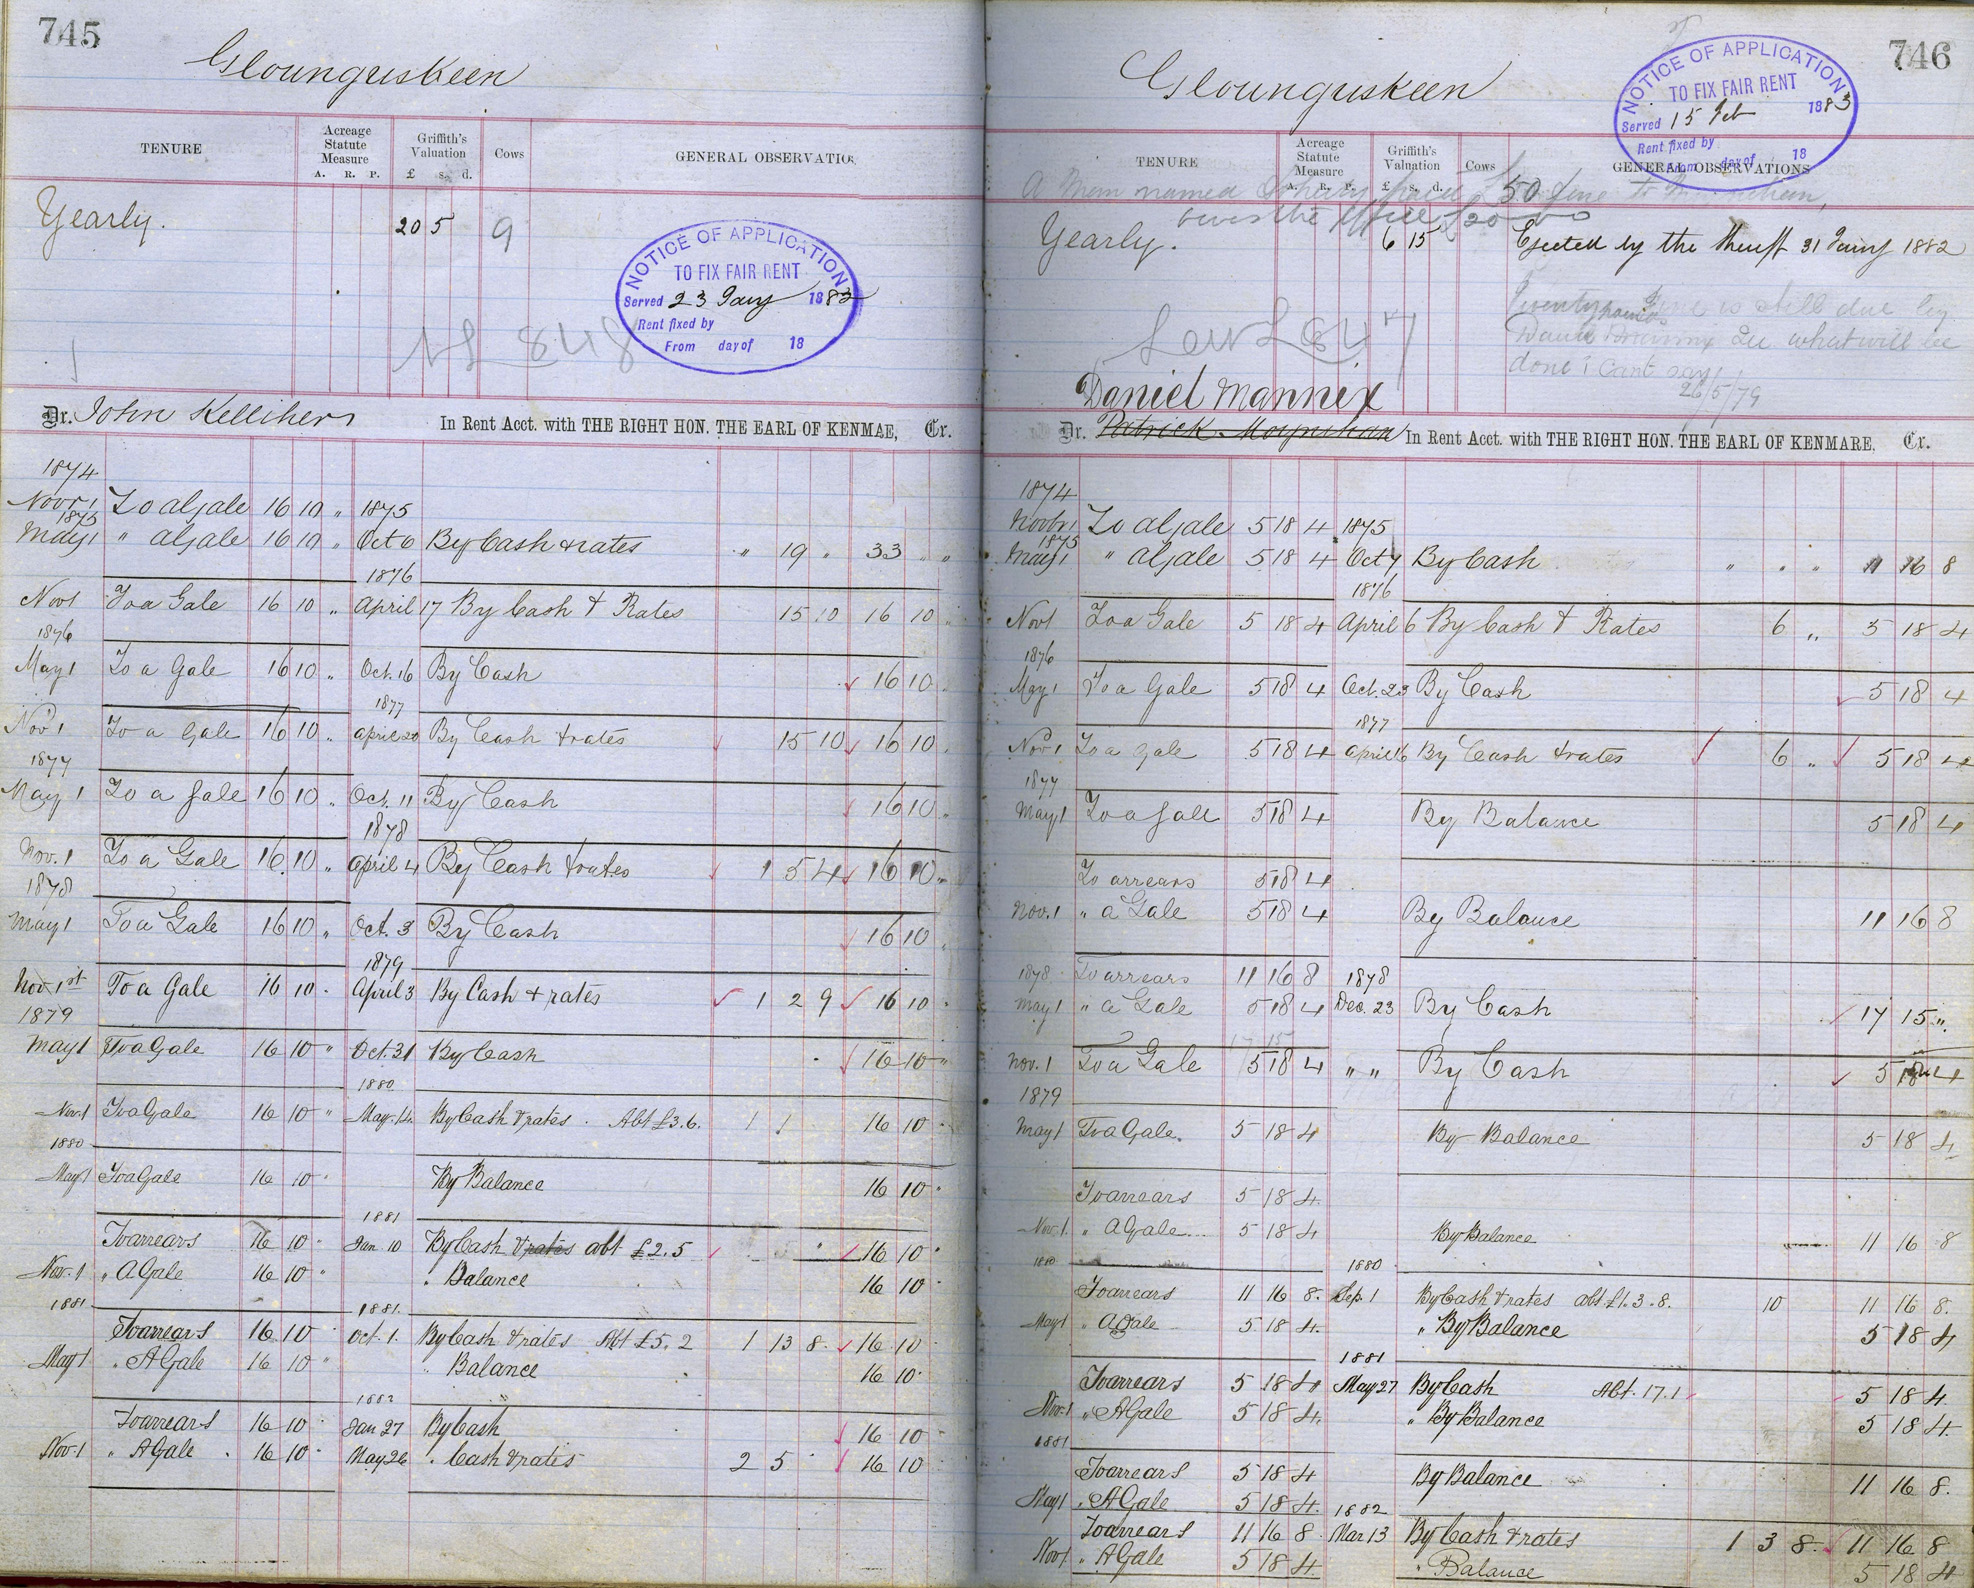 745
Glounguskeen
TENURE
Acreage Statute Measure
A. R. P.
Griffith's Valuation
£ s. d.
Cows
GENERAL OBSERVATIO
Yearly.
20 5
9
NOTICE OF APPLICATION
TO FIX FAIR RENT
Served 23 Jany 1883
Rent fixed by
From day of 18
848
Dr. John Kellihers In Rent Acct. with THE RIGHT HON. THE EARL OF KENMAE, Cr.
1874
Novr 1 To a Gale 16 10 " 1875
1875
May 1 " a Gale 16 10 " Oct 6 By Cash & rates " 19 " 33 " "
1876
Nov 1 To a Gale 16 10 " April 17 By Cash & Rates 15 10 16 10 "
1876
May 1 To a Gale 16 10 " Oct. 16 By Cash 16 10
1877
Nov 1 To a Gale 16 10 " April 20 By Cash & rates 15 10 16 10
1877
May 1 To a Gale 16 10 " Oct. 11 By Cash 16 10 "
1878
Nov. 1 To a Gale 16 10 " April 4 By Cash & rates 1 5 4 16 10 "
1878
May 1 To a Gale 16 10 " Oct. 3 By Cash 16 10 "
1879
Nov 1st To a Gale 16 10 " April 3 By Cash & rates 1 2 9 16 10 "
1879
May 1 To a Gale 16 10 " Oct. 31 By Cash 16 10 "
1880
Nov. 1 To a Gale 16 10 " May 14. By Cash & rates . Abt £3.6. 1 1 16 10 "
1880
May 1 To a Gale 16 10 " By Balance 16 10 "
1881
To arrears 16 10 " Jan. 10 By Cash & rates abt £2.5 16 10 "
Nov. 1 " A Gale 16 10 " " Balance 16 10 "
1881 1881.
To arrears 16 10 " Oct. 1. By Cash & rates Abt £5.2 1 13 8 16 10
May 1 " A Gale 16 10 " " Balance 16 10
1882
To arrears 16 10 Jan 27 By Cash 16 10
Nov. 1 " A Gale . 16 10 " May 26 " Cash & rates 2 5 16 10
746
Glounguskeen
NOTICE OF APPLICATION
TO FIX FAIR RENT
Served 15 Feb 1883
Rent fixed by
From day of 18
TENURE
Acreage Statute Measure
A. R. P.
Griffith's Valuation
£ s. d.
Cows
GENERAL OBSERVATIONS
A man named Doherty paid £50 fine to Moynihan,
owes the office £20
Yearly.
6 15
Ejected by the Sheriff 31 Jany 1882
Twenty pounds fine is still due by
Daniel Mannix See what will be
done? Cant say!
26/5/79
847
Daniel Mannix
Dr. Patrick Moynihan In Rent Acct. with THE RIGHT HON. THE EARL OF KENMARE, Cr.
1874
Novbr 1 To a Gale 5 18 4 1875
1875
May 1 " a Gale 5 18 4 Oct 7 By Cash " " " 11 16 8
1876
Nov 1 To a Gale 5 18 4 April 6 By Cash & Rates 6 " 5 18 4
1876
May 1 To a Gale 5 18 4 Oct. 23 By Cash 5 18 4
1877
Nov 1 To a Gale 5 18 4 April 16 By Cash & rates 6 " 5 18 4
1877
May 1 To a Gale 5 18 4 By Balance 5 18 4
To arrears 5 18 4
Nov. 1 " a Gale 5 18 4 By Balance 11 16 8
1878 To arrears 11 16 8 1878
May 1 " a Gale 5 18 4 Dec. 23 By Cash 17 15 "
17 15
Nov. 1 To a Gale 5 18 4 " " By Cash 5 18 4
1879
May 1 To a Gale. 5 18 4 By Balance 5 18 4
To arrears 5 18 4.
Nov. 1. " A Gale 5 18 4 By Balance 11 16 8
1880 1880
To arrears 11 16 8. Sep. 1 By Cash & rates abt. £1.3.8. 10 11 16 8.
May 1 " A Gale 5 18 4. " By Balance 5 18 4
1881
To arrears 5 18 4 May 27 By Cash Abt. 17.1 5 18 4
Nov. 1 " A Gale 5 18 4. " By Balance 5 18 4.
1881
To arrears 5 18 4 By Balance 11 16 8.
May 1 " A Gale 5 18 4. 1882
To arrears 11 16 8 Mar 13 By Cash & rates 1 3 8. 11 16 8
Nov 1 " A Gale 5 18 4. " Balance 5 18 4